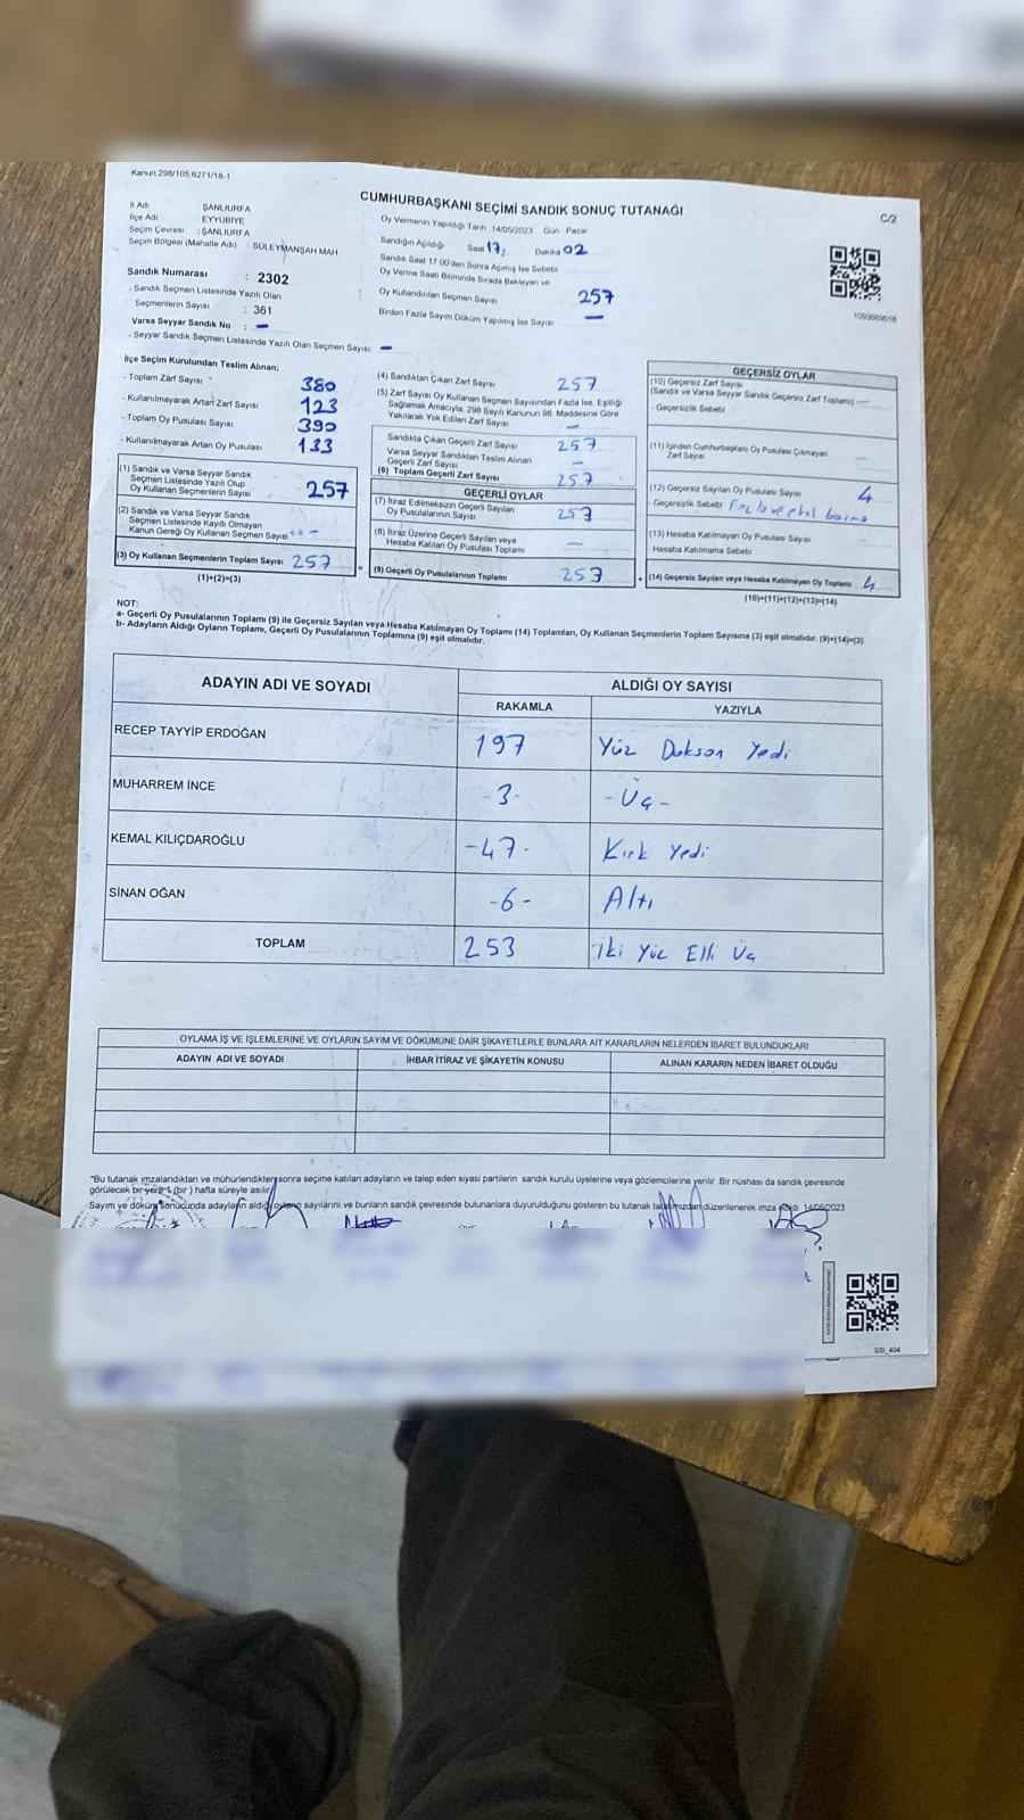 Kanun:298/105,6271/18-1
CUMHURBAŞKANI SEÇİMİ SANDIK SONUÇ TUTANAĞI
C/2
İl Adı : ŞANLIURFA
İlçe Adı : EYYÜBİYE
Seçim Çevresi : ŞANLIURFA
Seçim Bölgesi (Mahalle Adı) : SÜLEYMANŞAH MAH
Oy Vermenin Yapıldığı Tarih :14/05/2023 Gün : Pazar
Sandığın Açıldığı Saat 17: Dakika 02
Sandık Saat 17:00'den Sonra Açılmış İse Sebebi
Oy Verme Saati Bitiminde Sırada Bekleyen ve
Oy Kullandırılan Seçmen Sayısı 257
Birden Fazla Sayım Döküm Yapılmış İse Sayısı –
Sandık Numarası : 2302
- Sandık Seçmen Listesinde Yazılı Olan
Seçmenlerin Sayısı : 361
Varsa Seyyar Sandık No : –
- Seyyar Sandık Seçmen Listesinde Yazılı Olan Seçmen Sayısı: –
İlçe Seçim Kurulundan Teslim Alınan;
- Toplam Zarf Sayısı 380
- Kullanılmayarak Artan Zarf Sayısı 123
- Toplam Oy Pusulası Sayısı 390
- Kullanılmayarak Artan Oy Pusulası 133
(1) Sandık ve Varsa Seyyar Sandık
Seçmen Listesinde Yazılı Olup
Oy Kullanan Seçmenlerin Sayısı 257
(2) Sandık ve Varsa Seyyar Sandık
Seçmen Listesinde Kayıtlı Olmayan
Kanun Gereği Oy Kullanan Seçmen Sayısı –
(3) Oy Kullanan Seçmenlerin Toplam Sayısı 257
(1)+(2)=(3)
(4) Sandıktan Çıkan Zarf Sayısı 257
(5) Zarf Sayısı Oy Kullanan Seçmen Sayısından Fazla İse, Eşitliği
Sağlamak Amacıyla, 298 Sayılı Kanunun 98. Maddesine Göre
Yakılarak Yok Edilen Zarf Sayısı –
Sandıkta Çıkan Geçerli Zarf Sayısı 257
Varsa Seyyar Sandıktan Teslim Alınan
Geçerli Zarf Sayısı –
(6) Toplam Geçerli Zarf Sayısı 257
GEÇERLİ OYLAR
(7) İtiraz Edilmeksizin Geçerli Sayılan
Oy Pusulalarının Sayısı 253
(8) İtiraz Üzerine Geçerli Sayılan veya
Hesaba Katılan Oy Pusulası Toplamı –
(9) Geçerli Oy Pusulalarının Toplamı 253
GEÇERSİZ OYLAR
(10) Geçersiz Zarf Sayısı
(Sandık ve Varsa Seyyar Sandık Geçersiz Zarf Toplamı) –
- Geçersizlik Sebebi
(11) İçinden Cumhurbaşkanı Oy Pusulası Çıkmayan
Zarf Sayısı –
(12) Geçersiz Sayılan Oy Pusulası Sayısı 4
- Geçersizlik Sebebi
(13) Hesaba Katılmayan Oy Pusulası Sayısı –
Hesaba Katılmama Sebebi
(14) Geçersiz Sayılan veya Hesaba Katılmayan Oy Toplamı 4
(10)+(11)+(12)+(13)=(14)
NOT:
a- Geçerli Oy Pusulalarının Toplamı (9) ile Geçersiz Sayılan veya Hesaba Katılmayan Oy Toplamı (14) Toplamları, Oy Kullanan Seçmenlerin Toplam Sayısına (3) eşit olmalıdır. (9)+(14)=(3)
b- Adayların Aldığı Oyların Toplamı, Geçerli Oy Pusulalarının Toplamına (9) eşit olmalıdır.
ADAYIN ADI VE SOYADI
ALDIĞI OY SAYISI
RAKAMLA YAZIYLA
RECEP TAYYİP ERDOĞAN 197 Yüz Doksan Yedi
MUHARREM İNCE -3- -Üç-
KEMAL KILIÇDAROĞLU -47- Kırk Yedi
SİNAN OĞAN -6- Altı
TOPLAM 253 İki Yüz Elli Üç
OYLAMA İŞ VE İŞLEMLERİNE VE OYLARIN SAYIM VE DÖKÜMÜNE DAİR ŞİKAYETLERLE BUNLARA AİT KARARLARIN NELERDEN İBARET BULUNDUKLARI
ADAYIN ADI VE SOYADI İHBAR İTİRAZ VE ŞİKAYETİN KONUSU ALINAN KARARIN NEDEN İBARET OLDUĞU
*Bu tutanak imzalandıktan ve mühürlendikten sonra seçime katılan adayların ve talep eden siyasi partilerin sandık kurulu üyelerine veya gözlemcilerine verilir. Bir nüshası da sandık çevresinde
görülecek bir yere 1 (bir) hafta süreyle asılır.
Sayım ve döküm sonucunda adayların aldığı oyların sayılarını ve bunların sandık çevresinde bulunanlara duyurulduğunu gösteren bu tutanak tarafımızdan düzenlenerek imza edildi. 14/05/2023